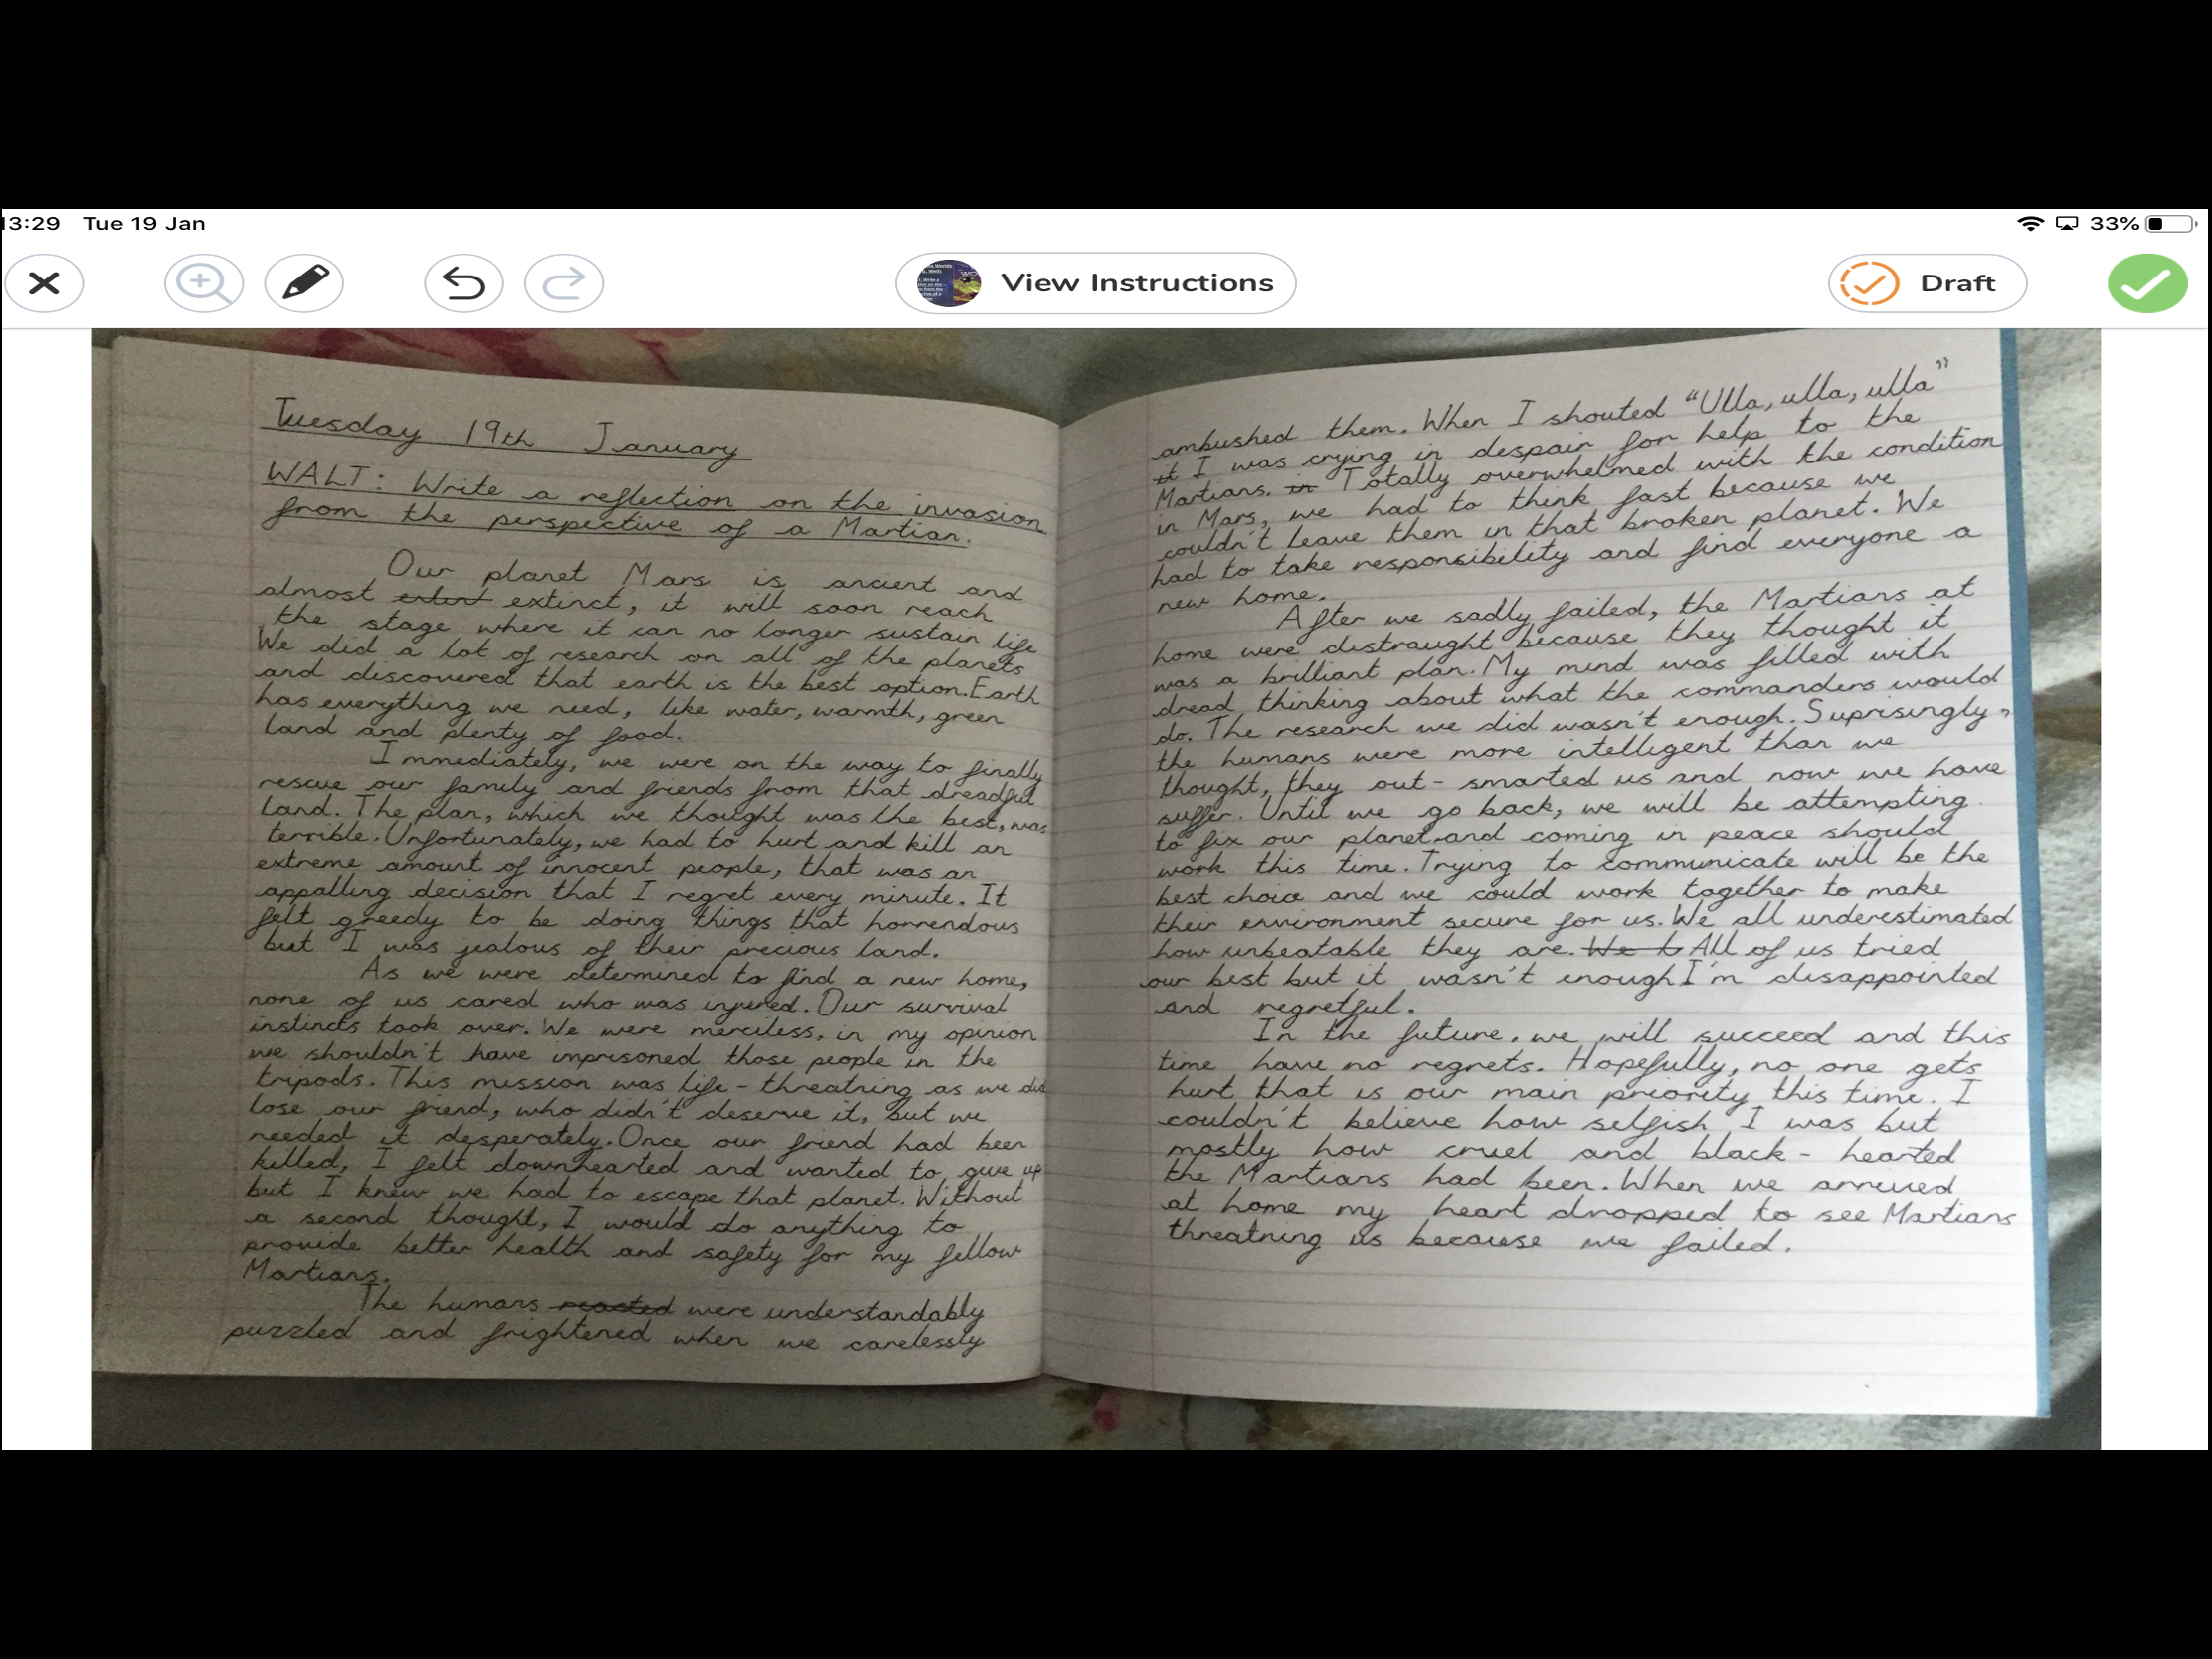 13:29 Tue 19 Jan
33%
View Instructions
Draft
Tuesday 19th January
WALT: Write a reflection on the invasion
from the perspective of a Martian.
Our planet Mars is ancient and
almost extinct, it will soon reach
the stage where it can no longer sustain life
We did a lot of research on all of the planets
and discovered that earth is the best option. Earth
has everything we need, like water, warmth, green
land and plenty of food.
Immediately, we were on the way to finally
rescue our family and friends from that dreadful
land. The plan, which we thought was the best, was
terrible. Unfortunately, we had to hurt and kill an
extreme amount of innocent people, that was an
appalling decision that I regret every minute. It
felt greedy to be doing things that horrendous
but I was jealous of their precious land.
As we were determined to find a new home,
none of us cared who was injured. Our survival
instincts took over. We were merciless, in my opinion
we shouldn't have imprisoned those people in the
tripods. This mission was life-threatning as we did
lose our friend, who didn't deserve it, but we
needed it desperately. Once our friend had been
killed, I felt downhearted and wanted to give up
but I knew we had to escape that planet. Without
a second thought, I would do anything to
provide better health and safety for my fellow
Martians.
The humans reacted were understandably
puzzled and frightened when we carelessly
ambushed them. When I shouted "Ulla, ulla, ulla"
it I was crying in despair for help to the
Martians. in Totally overwhelmed with the condition
in Mars, we had to think fast because we
couldn't leave them in that broken planet. We
had to take responsibility and find everyone a
new home.
After we sadly failed, the Martians at
home were distraught because they thought it
was a brilliant plan. My mind was filled with
dread thinking about what the commanders would
do. The research we did wasn't enough. Suprisingly,
the humans were more intelligent than we
thought, they out-smarted us and now we have
suffer. Until we go back, we will be attempting
to fix our planet and coming in peace should
work this time. Trying to communicate will be the
best choice and we could work together to make
their environment secure for us. We all underestimated
how unbeatable they are. We t All of us tried
our best but it wasn't enough I'm disappointed
and regretful.
In the future, we will succeed and this
time have no regrets. Hopefully, no one gets
hurt that is our main priority this time. I
couldn't believe how selfish I was but
mostly how cruel and black-hearted
the Martians had been. When we arrived
at home my heart dropped to see Martians
threatning us because we failed.